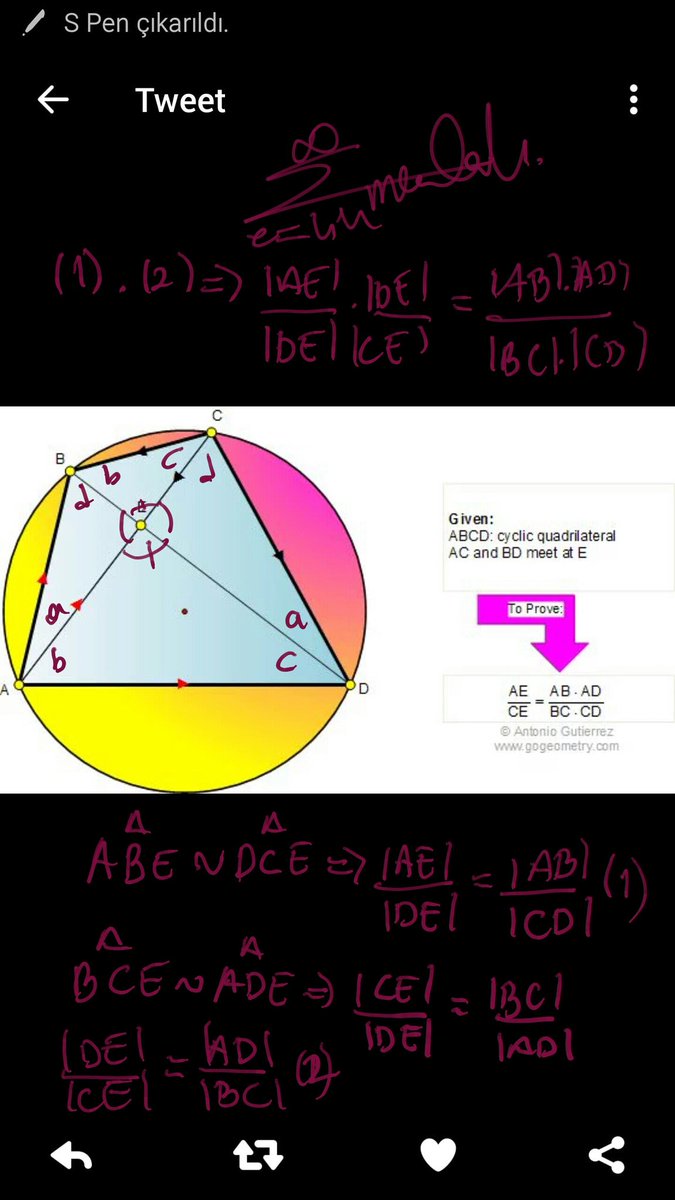 S Pen çıkarıldı.
Tweet
∞
Σ
(1) . (2) => |AE| / |DE| . |DE| / |CE| = |AB|.|AD| / |BC|.|CD|
C
B
b c d
d
E
a a
b c
A D
Given:
ABCD: cyclic quadrilateral
AC and BD meet at E
To Prove:
AE / CE = AB . AD / BC . CD
© Antonio Gutierrez
www.gogeometry.com
ABE ~ DCE => |AE| / |DE| = |AB| / |CD| (1)
BCE ~ ADE => |CE| / |DE| = |BC| / |AD|
|DE| / |CE| = |AD| / |BC| (2)